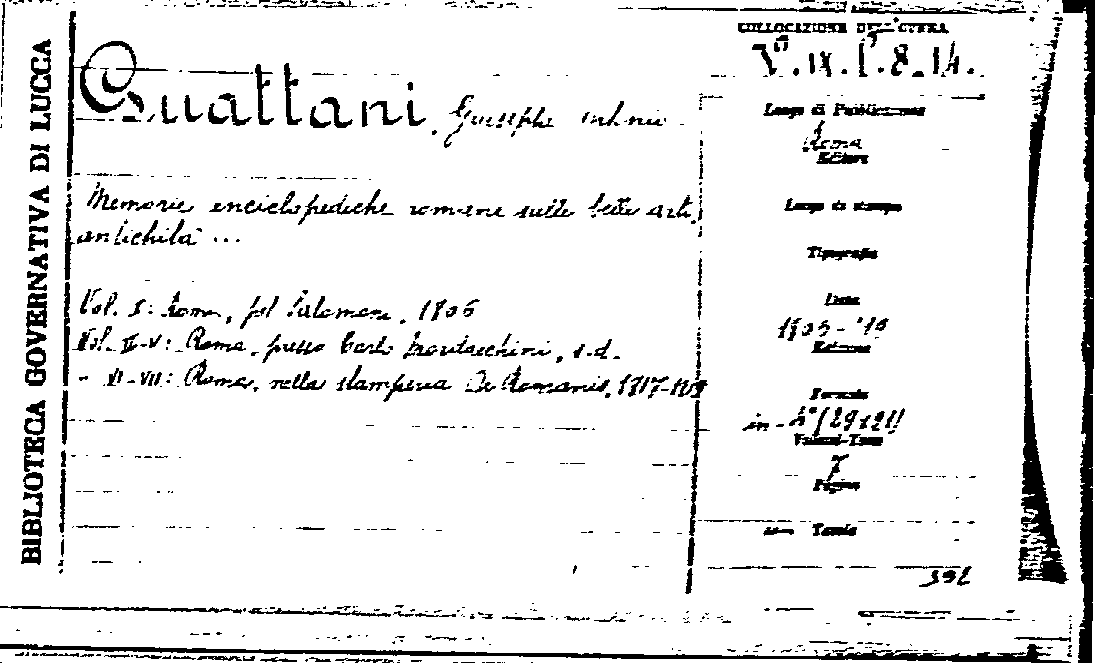 BIBLIOTECA GOVERNATIVA DI LUCCA
COLLOCAZIONE DELL'OPERA
Guattani, Giuseppe Antonio
Memorie enciclopediche romane sulle belle arti,
antichità ...
Vol. I: Roma, pel Salomoni, 1806
Vol. II-V: Roma, presso Carlo Mordacchini, s.d.
- VI-VII: Roma, nella stamperia De Romanis, 1817-
Luogo di Pubblicazione
Roma
Editore
Luogo di stampa
Tipografia
Data
Edizione
Formato
in-4° (29x21)
Volumi-Tomi
7
Pagine
Tavole
392